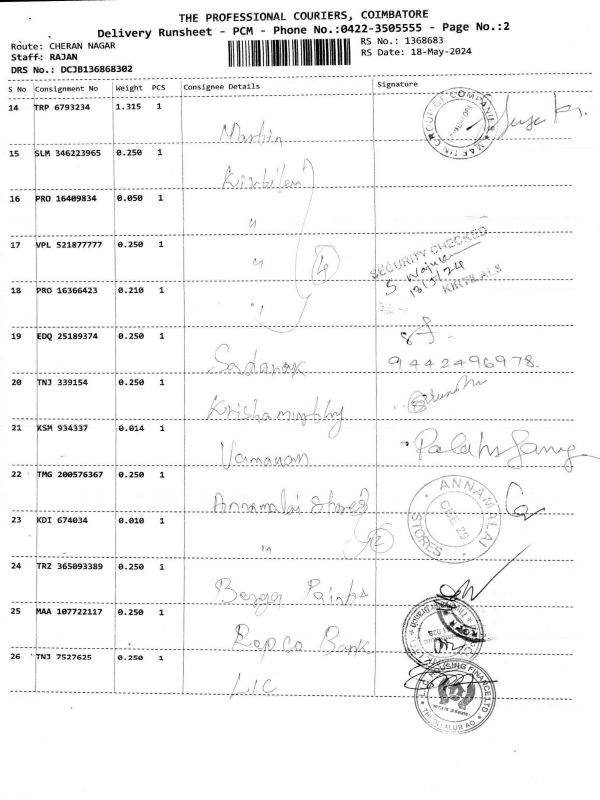 THE PROFESSIONAL COURIERS, COIMBATORE
Delivery Runsheet - PCM - Phone No.:0422-3505555 - Page No.:2
Route: CHERAN NAGAR
RS No.: 1368683
Staff: RAJAN
RS Date: 18-May-2024
DRS No.: DCJB136868302
S No Consignment No Weight PCS Consignee Details Signature
14 TRP 6793234 1.315 1
Martin
MARTIN GROUP OF COMPANIES
15 SLM 346223965 0.250 1
Kirtilal
16 PRO 16409834 0.050 1
"
17 VPL 521877777 0.250 1
"
4
SECURITY CHECKED
18/5/24
KIRTILALS
18 PRO 16366423 0.210 1
"
19 EDQ 25189374 0.250 1
Sadanak
9442496978.
20 TNJ 339154 0.250 1
Krishamurthy
21 KSM 934337 0.014 1
Vamanan
22 TMG 200576367 0.250 1
Annamalai Stores
ANNAMALAI STORES
CBE 29
23 KDI 674034 0.010 1
"
2
24 TRZ 365093389 0.250 1
Berger Paints
25 MAA 107722117 0.250 1
Repco Bank
26 TNJ 7527625 0.250 1
LIC
HOUSING FINANCE LTD